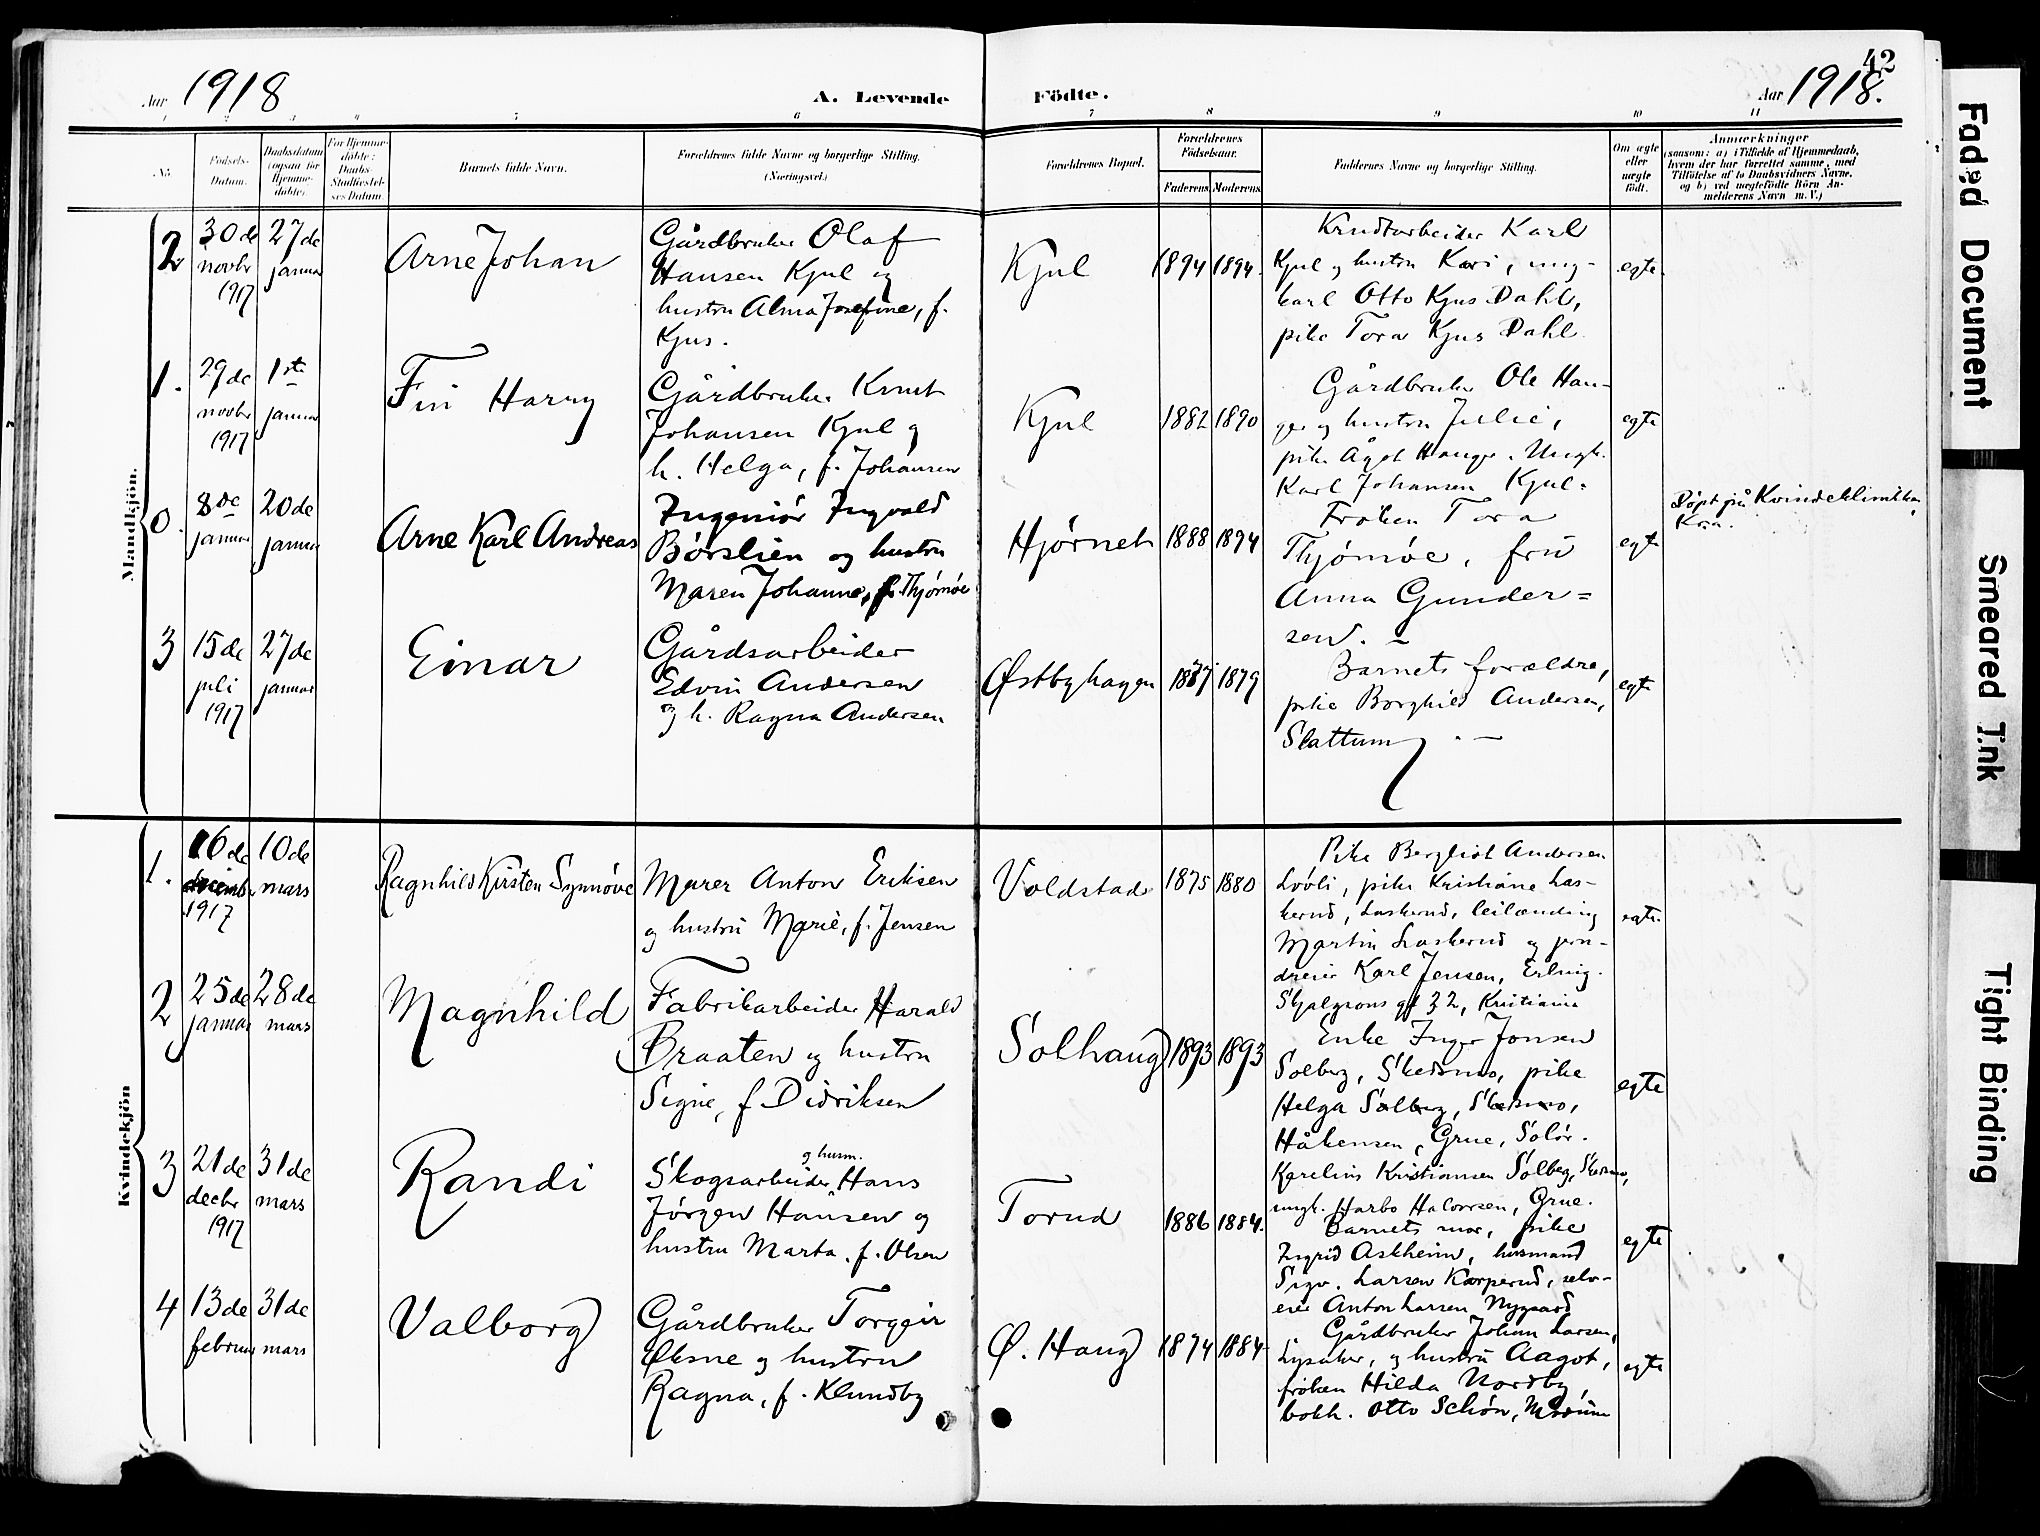 42
Aar 1918 A. Levende Födte. Aar 1918.
1 2 3 4 5 6 7 8 9 10 11
No. Födsels-Datum. Daabsdatum (ogsaa for Hjemmedöbte). For Hjemmedöbte: Daabs-Stadfæstelses Datum. Barnets fulde Navn. Forældrenes fulde Navne og borgerlige Stilling. (Næringsvei.) Forældrenes Bopæl. Forældrenes Födselsaar. Faderens Moderens Faddernes Navne og borgerlige Stilling. Om ægte eller uægte født.
Anmærkninger
(saasom: a) i Tilfælde af Hjemmedaab,
hvem der har forrettet samme, med
Tilföielse af to Daabsvidners Navne,
og b) ved uægtefödte Börn An-
melderens Navn m. V.)
Mandkjön.
2 30de novbr 1917 27de januar
Arne Johan
Gårdbruker Olaf
Hansen Kjul og
hustru Alma Josefine, f.
Kjus.
Kjul 1894 1894.
Krudtarbeider Karl
Kjul og hustru Kari, ung-
karl Otto Kjus Dahl,
pike Tora Kjus Dahl.
egte
1. 29de novbr 1917 1ste januar
Fin Harry
Gårdbruker Knut
Johansen Kjul og
h. Helga, f. Johansen
Kjul 1882 1890
Gårdbruker Ole Hau-
ger og hustru Julie,
pike Ågot Hauger. Ungk.
Karl Johansen Kjul.
egte
0. 8de januar 20de januar
Arne Karl Andreas
Ingeniør Ingvald
Børslien og hustru
Maren Johanne, f. Thjømøe
Hjørnet 1888 1894
Frøken Tora
Thjømøe, fru
Anna Gunder=
sen. –
egte
Døpt på Kvindeklinikken,
Kra.
3 15de juli 1917 27de januar
Einar
Gårdsarbeider
Edvin Andersen
og h. Ragna Andersen
Østbyhagen 1877 1879
Barnets forældre,
pike Borghild Andersen,
Slattum. —
egte
Kvindekjön
1. 16de decembr 1917 10de mars
Ragnhild Kirsten Synnøve
Murer Anton Eriksen
og hustru Marie, f. Jensen
Voldstad 1875 1880
Pike Bergliot Andersen
Løvli, pike Kristiane Las-
kerud, Laskerud, leilænding
Martin Laskerud og jern-
dreier Karl Jensen, Erling
Skjalgsons gt 32, Kristiania
egte.
2 25de januar 28de mars
Magnhild
Fabrikarbeider Harald
Braaten og hustru
Signe, f Didriksen
Solhaug 1893 1893
Enke Inger Jonsen
Solberg, Skedsmo, pike
Helga Solberg, Skedsmo,
Håkensen, Grue, Solør.
Karelius Kristiansen Solberg, Skedsmo,
ungk. Harbo Halvorsen, Grue.
egte
3 21de decbr 1917 31de mars
Randi
og husm.
Skogsarbeider Hans
Jørgen Hansen og
hustru Marta, f. Olsen
Torud 1886 1884.
Barnets mor, pike
Ingrid Askheim, husmand
Sigv. Larsen Kasperud, selv-
eier Anton Larsen Nygaard
egte
4 13de februar 31de mars
Valborg
Gårdbruker Torgeir
Øksne og hustru
Ragna, f. Klundby
Ø. Haug 1874 1884
Gårdbruker Johan Larsen,
Lysaker, og hustru Aagot,
frøken Hilda Nordby,
bokh. Otto Schøn, Modum
egte
Faded Document
Smeared Ink
Tight Binding